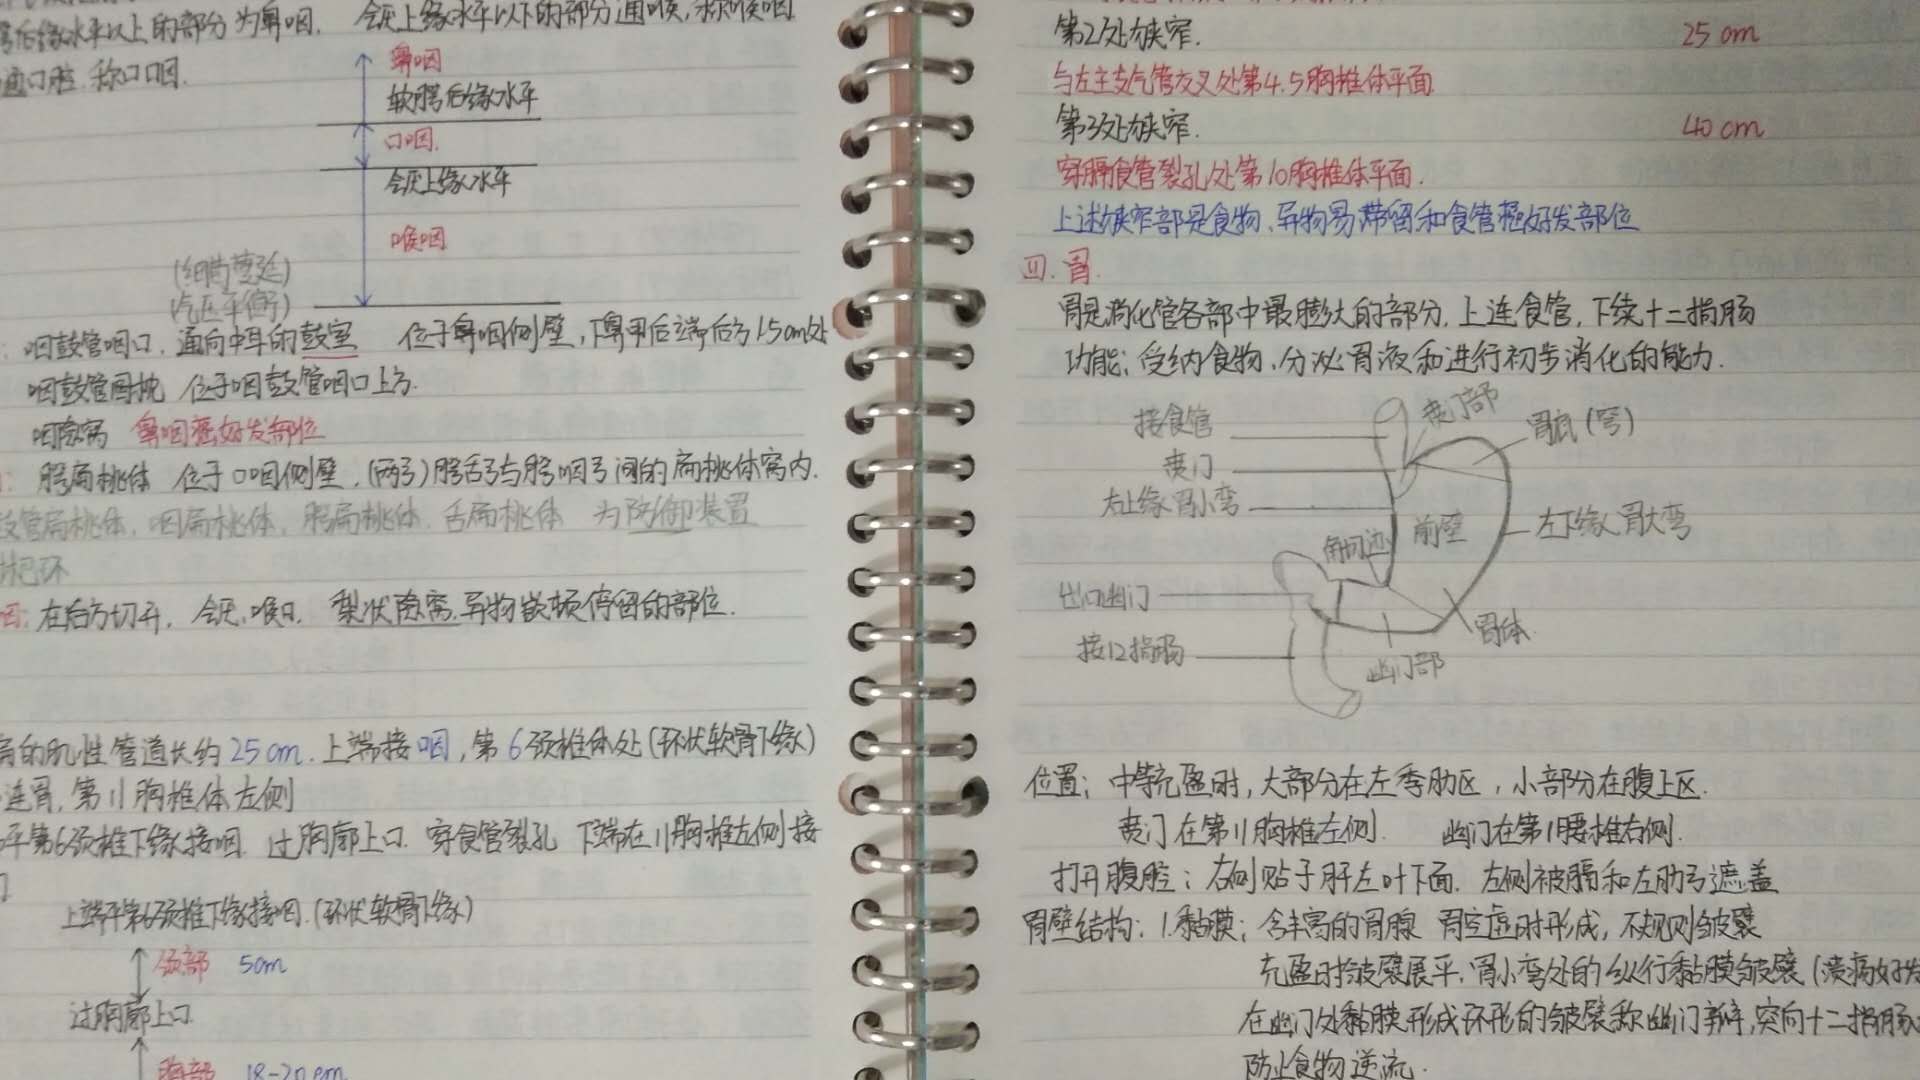 后缘水平以上的部分为鼻咽. 会厌上缘水平以下的部分通喉,称喉咽.
通口腔.称口咽.
鼻咽
软腭后缘水平
口咽.
会厌上缘水平
喉咽
(细菌蔓延)
(气压平衡)
: 咽鼓管咽口. 通向中耳的鼓室 位于鼻咽侧壁,下鼻甲后端后方1.5cm处
咽鼓管圆枕 位于咽鼓管咽口上方.
咽隐窝 鼻咽癌好发部位
: 腭扁桃体 位于口咽侧壁,(两弓)腭舌弓与腭咽弓间的扁桃体窝内.
管扁桃体,咽扁桃体,腭扁桃体.舌扁桃体 为防御装置
巴环
咽: 在后方切开, 会厌,喉口. 梨状隐窝.异物嵌顿停留的部位.
的肌性管道长约25cm.上端接咽,第6颈椎体处(环状软骨下缘)
连胃,第11胸椎体左侧
平第6颈椎下缘接咽. 过胸廓上口. 穿食管裂孔 下端在11胸椎左侧接
上端平第6颈椎下缘接咽.(环状软骨下缘)
颈部 5cm
过胸廓上口
胸部 18-20cm
第2处狭窄. 25cm
与左主支气管交叉处第4.5胸椎体平面
第3处狭窄. 40cm
穿膈食管裂孔处第10胸椎体平面.
上述狭窄部是食物、异物易滞留和食管癌好发部位
四.胃.
胃是消化管各部中最膨大的部分,上连食管,下续十二指肠
功能:受纳食物、分泌胃液和进行初步消化的能力.
接食管
贲门部
胃底(穹)
贲门
右上缘胃小弯
前壁
左下缘胃大弯
角切迹
出口幽门
胃体
接12指肠
幽门部
位置:中等充盈时,大部分在左季肋区,小部分在腹上区.
贲门在第11胸椎左侧. 幽门在第1腰椎右侧.
打开腹腔:右侧贴于肝左叶下面. 左侧被膈和左肋弓遮盖
胃壁结构: 1.黏膜:含丰富的胃腺 胃空虚时形成,不规则皱襞
充盈时皱襞展平,胃小弯处的纵行黏膜皱襞(溃疡好发
在幽门处黏膜形成环形的皱襞称幽门瓣,突向十二指肠
防止食物逆流.